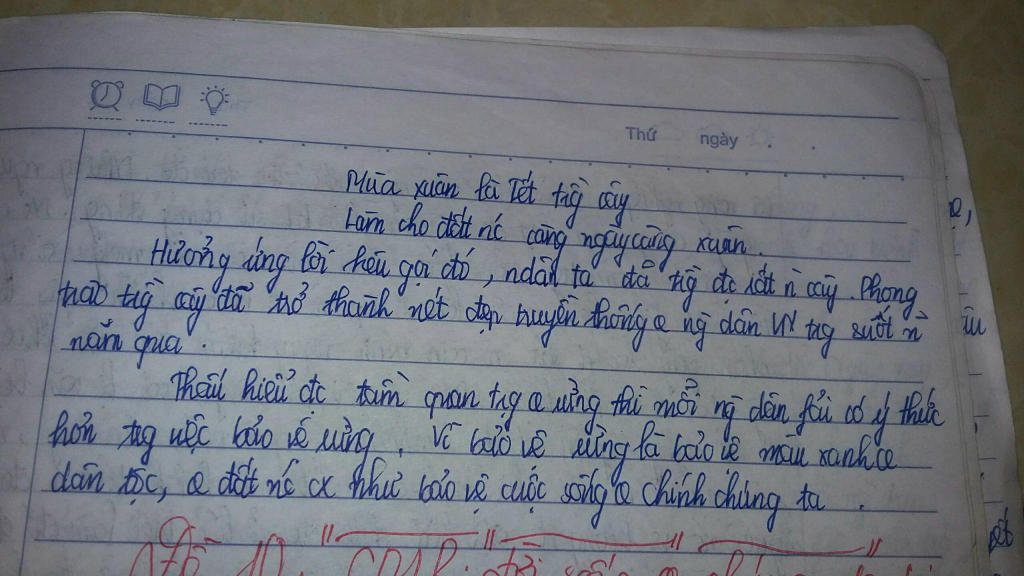 Thứ ngày . .
Mùa xuân là Tết tg̀ cây
Làm cho đất nc càng ngày càng xuân.
Hưởng ứng lời kêu gọi đó, ndân ta đã tg̀ đc rất ǹ cây. Phong
trào tg̀ cây đã trở thành nét đẹp truyền thống @ ng̀ dân VN tg suốt ǹ
năm qua.
Thấu hiểu đc tầm quan tg @ rừng thì mỗi ng̀ dân fải có ý thức
hơn tg việc bảo vệ rừng. Vì bảo vệ rừng là bảo vệ màu xanh @
dân tộc, @ đất nc cx như bảo vệ cuộc sống @ chính chúng ta.